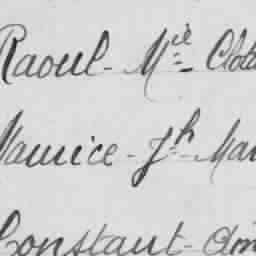 Raoul - Mie - Clota
Maurice - Jh - Mar
Constant - Am